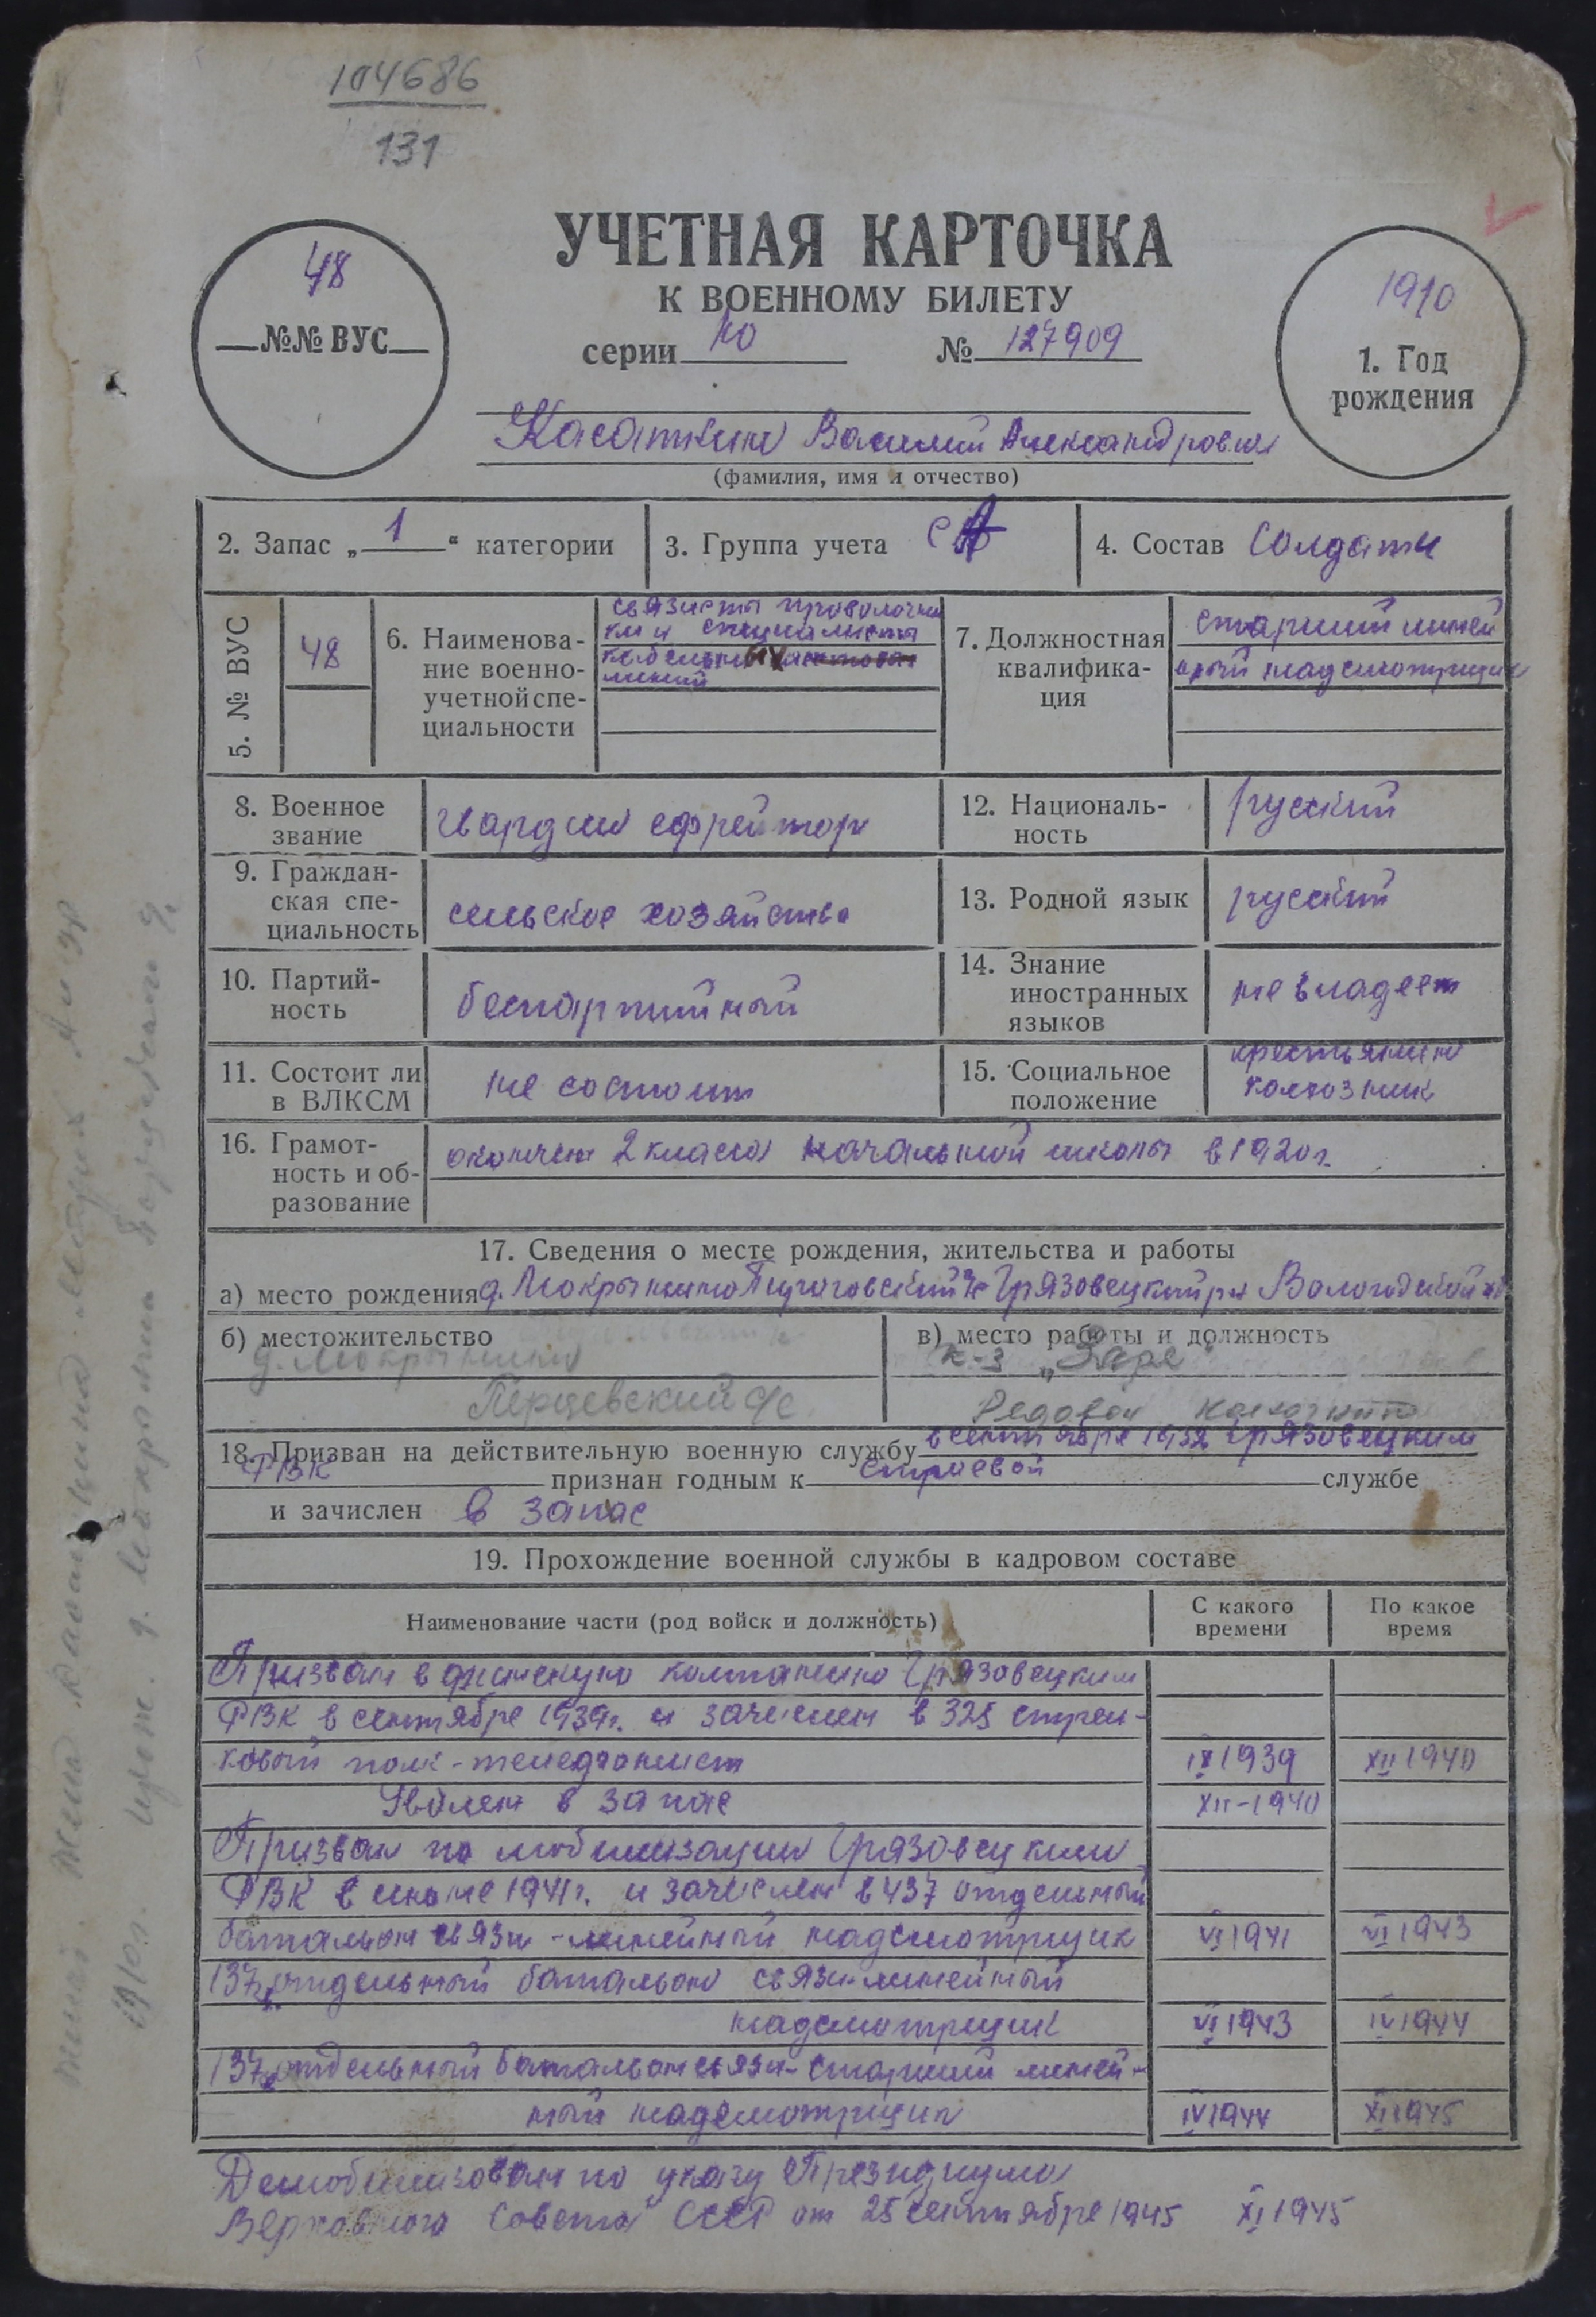 104686
131
УЧЕТНАЯ КАРТОЧКА
К ВОЕННОМУ БИЛЕТУ
серии № 127909
48
№№ ВУС
1910
1. Год
рождения
Касаткин Василий Александрович
(фамилия, имя и отчество)
2. Запас „ 1 “ категории
3. Группа учета СА
4. Состав солдаты
5. № ВУС
48
6. Наименова-
ние военно-
учетной спе-
циальности
связисты проволочни
ки и специалисты
кабельных
линий
7. Должностная
квалифика-
ция
старший линей
ный надсмотрщик
8. Военное
звание
гвардии ефрейтор
12. Националь-
ность
русский
9. Граждан-
ская спе-
циальность
сельское хозяйство
13. Родной язык
русский
10. Партий-
ность
беспартийный
14. Знание
иностранных
языков
не владеет
11. Состоит ли
в ВЛКСМ
не состоит
15. Социальное
положение
крестьянин
колхозник
16. Грамот-
ность и об-
разование
окончил 2 класса начальной школы в 1920 г.
17. Сведения о месте рождения, жительства и работы
а) место рождения д. Мокрынино Грязовецкий р-н Вологодской
б) местожительство
д. Мокрынино
Перцевский с/с
в) место работы и должность
к-з „Заря“
Рядовой колхозник
18. Призван на действительную военную службу в сентябре 1932 Грязовецким
РВК признан годным к строевой службе
и зачислен в запас
19. Прохождение военной службы в кадровом составе
Наименование части (род войск и должность)
С какого
времени
По какое
время
Призван в финскую компанию Грязовецким
РВК в сентябре 1939г. и зачислен в 325 стрел-
ковый полк - телефонист IX 1939 XII 1940
Уволен в запас XII-1940
Призван по мобилизации Грязовецким
РВК в июне 1941г. и зачислен в 437 отдельный
батальон связи - линейный надсмотрщик VI 1941 VI 1943
137 отдельный батальон связи линейный
надсмотрщик VI 1943 IV 1944
137 отдельный батальон связи - старший линей-
ный надсмотрщик IV 1944 XI 1945
Демобилизован по указу Президиума
Верховного Совета СССР от 25 сентября 1945 XI 1945